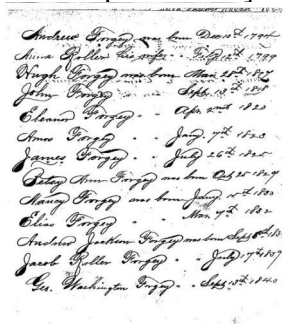 Andrew Forgey was born Dec 10th 1794
Anna Roller his wife - Feby 12th 1799
Hugh Forgey was born Mar 28th 1817
John Forgey - - Sept. 13th 1818
Eleanor Forgey - - Apr 2nd 1820
Amos Forgey - - Jany 7th 1823
James Forgey - - July 26th 1825
Betsy Ann Forgey was born Oct 25 1827
Nancy Forgey was born Jany. 10th 1830
Elias Forgey - - Mar 7th 1832
Andrew Jackson Forgey was born Sept 8th
Jacob Roller Forgey - - July 17th 1837
Geo. Washington Forgey - - Sept 13th 1840